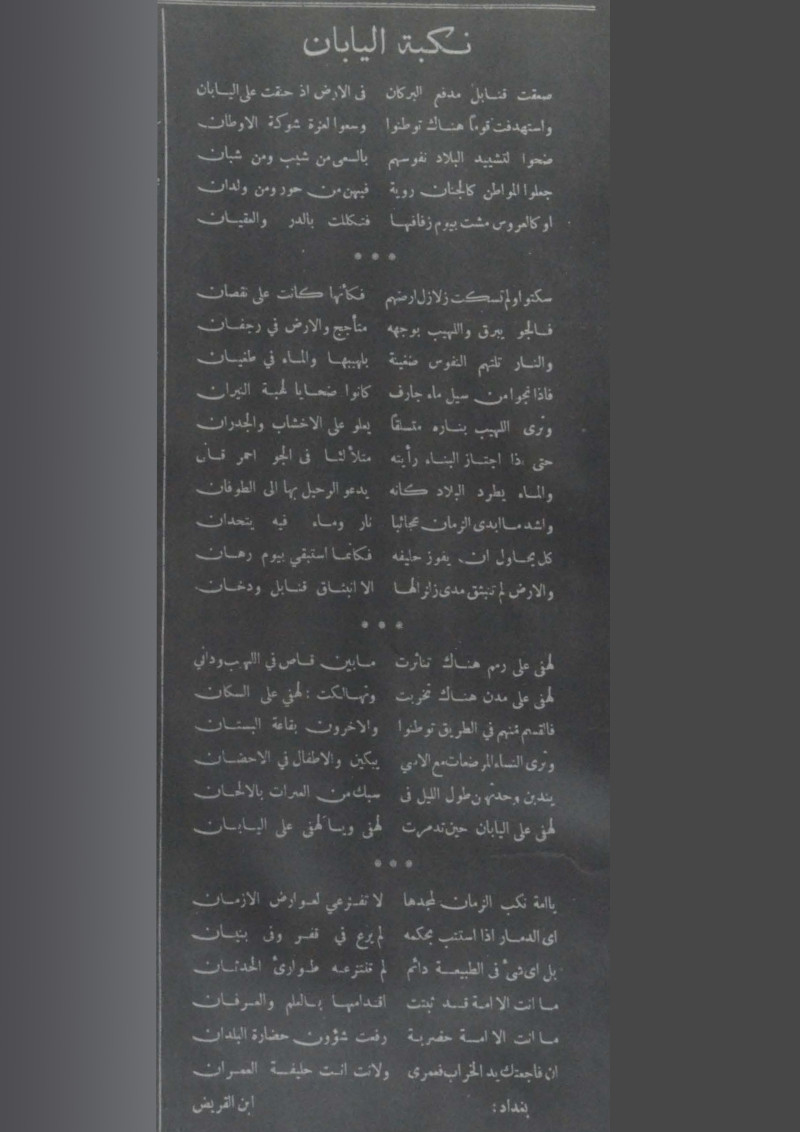 نكبة اليابان
صعقت قنابل مدفع البركان في الارض اذ حنقت على اليابان
واستهدفت قوما هناك توطنوا وسعوا لعزة شوكة الاوطان
ضحوا لتشييد البلاد نفوسهم بالسعى من شيب ومن شبان
جعلوا المواطن كالجنان روية فيهن من حور ومن ولدان
او كالعروس مشت بيوم زفافها فتكللت بالدر والعقيان
سكتوا ولم تسكت زلازل ارضهم فكأنها كانت على نقصان
فالجو يبرق واللهيب بوجهه متأجج والارض في رجفان
والنار تلتهم النفوس ضغينة بلهيبها والماء في طغيان
فاذا نجوا من سيل ماء جارف كانوا ضحايا لحبة النيران
وترى اللهيب بناره متسلقا يعلو على الاخشاب والجدران
حتى اذا اجتاز البناء رأيته متلألئا في الجو احمر قان
والماء يطرد البلاد كانه يدعو الرحيل بها الى الطوفان
واشد ما ابدى الزمان عجائبا نار وماء فيه يتحدان
كل يحاول ان يفوز حليفه فكانما استبقي بيوم رهان
والارض لم تنبثق مدى زلزالها الا انبثاق قنابل ودخان
لهفي على رمم هناك تناثرت مابين قاص في اللهب وداني
لهفي على مدن هناك تخربت وتهالكت : لهفي على السكان
فالقسم منهم في الطريق توطنوا والاخرون بقاعة البستان
وترى النساء المرضعات مع الاسي يبكين والاطفال في الاحضان
يندبن وحدتهن طول الليل في سبك من العبرات بالالحان
لهفي على اليابان حين تدمرت لهفي ويا لهفي على اليابان
ياامة نكب الزمان لمجدها لا تفزعي لعوارض الازمان
اى الدمار اذا استتب بحكمه لم يرع في قفر وفى بنيان
بل اى شئ في الطبيعة دائم لم تنتزعه طوارئ الحدثان
ما انت الا امة قد ثبتت اقدامها بالعلم والعرفان
ما انت الا امة حضرية رفعت شؤون حضارة البلدان
ان فاجعتك يد الخراب فعمرى ولانت انت حليفة العمران
بغداد : ابن القريض